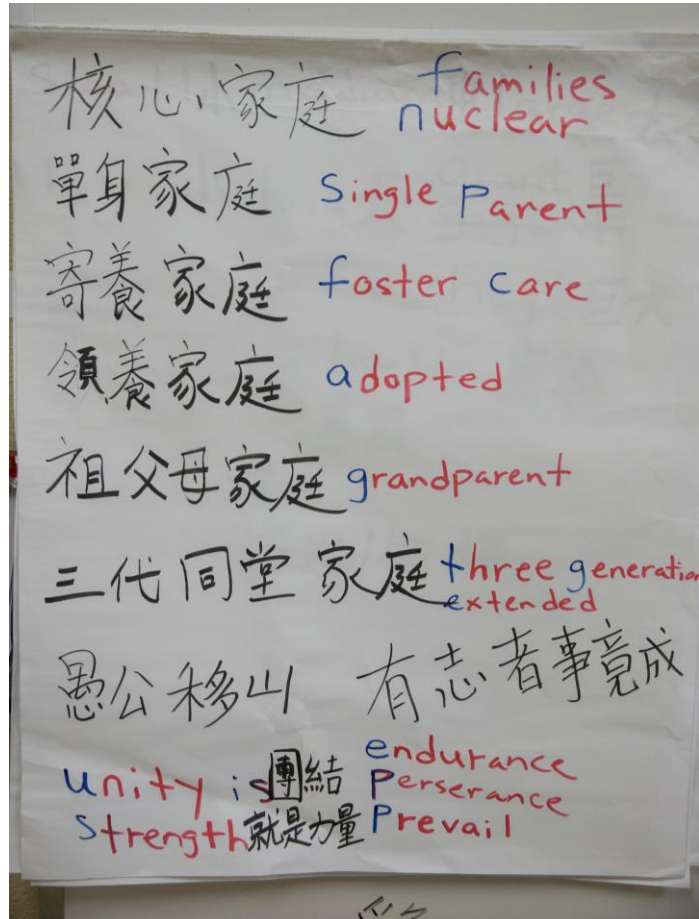 核心家庭 families
nuclear
單身家庭 single Parent
寄養家庭 foster care
領養家庭 adopted
祖父母家庭 grandparent
三代同堂家庭 three generation
extended
愚公移山 有志者事竟成
unity is 團結 endurance
Perserance
strength 就是力量 Prevail